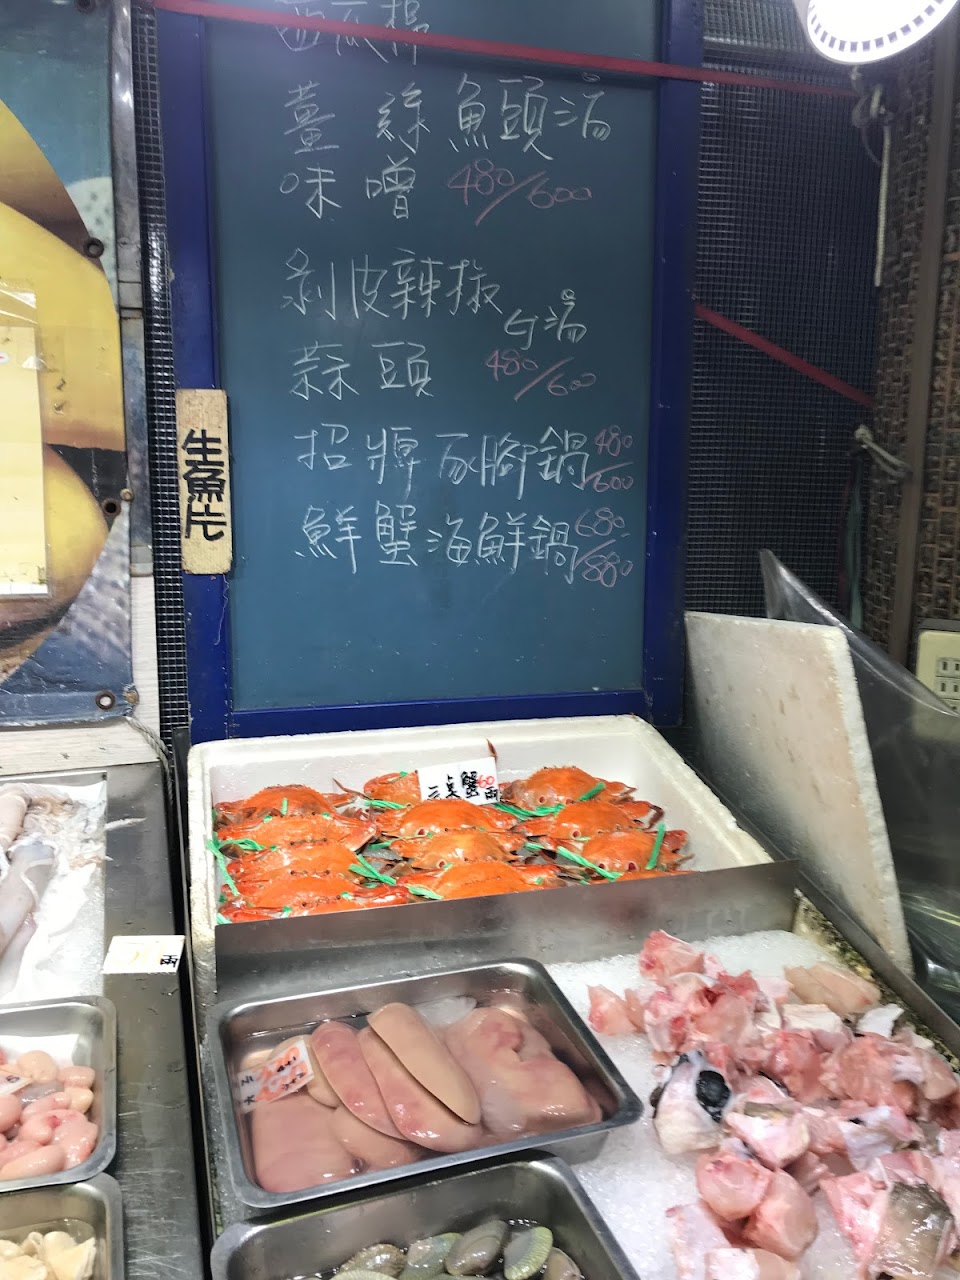 薑絲魚頭湯
味噌 480/600
剝皮辣椒
ㄣ湯
蒜頭 480/600
招牌豕腳鍋 480/600
鮮蟹海鮮鍋 680/880
生魚片
三点蟹 60兩
兩